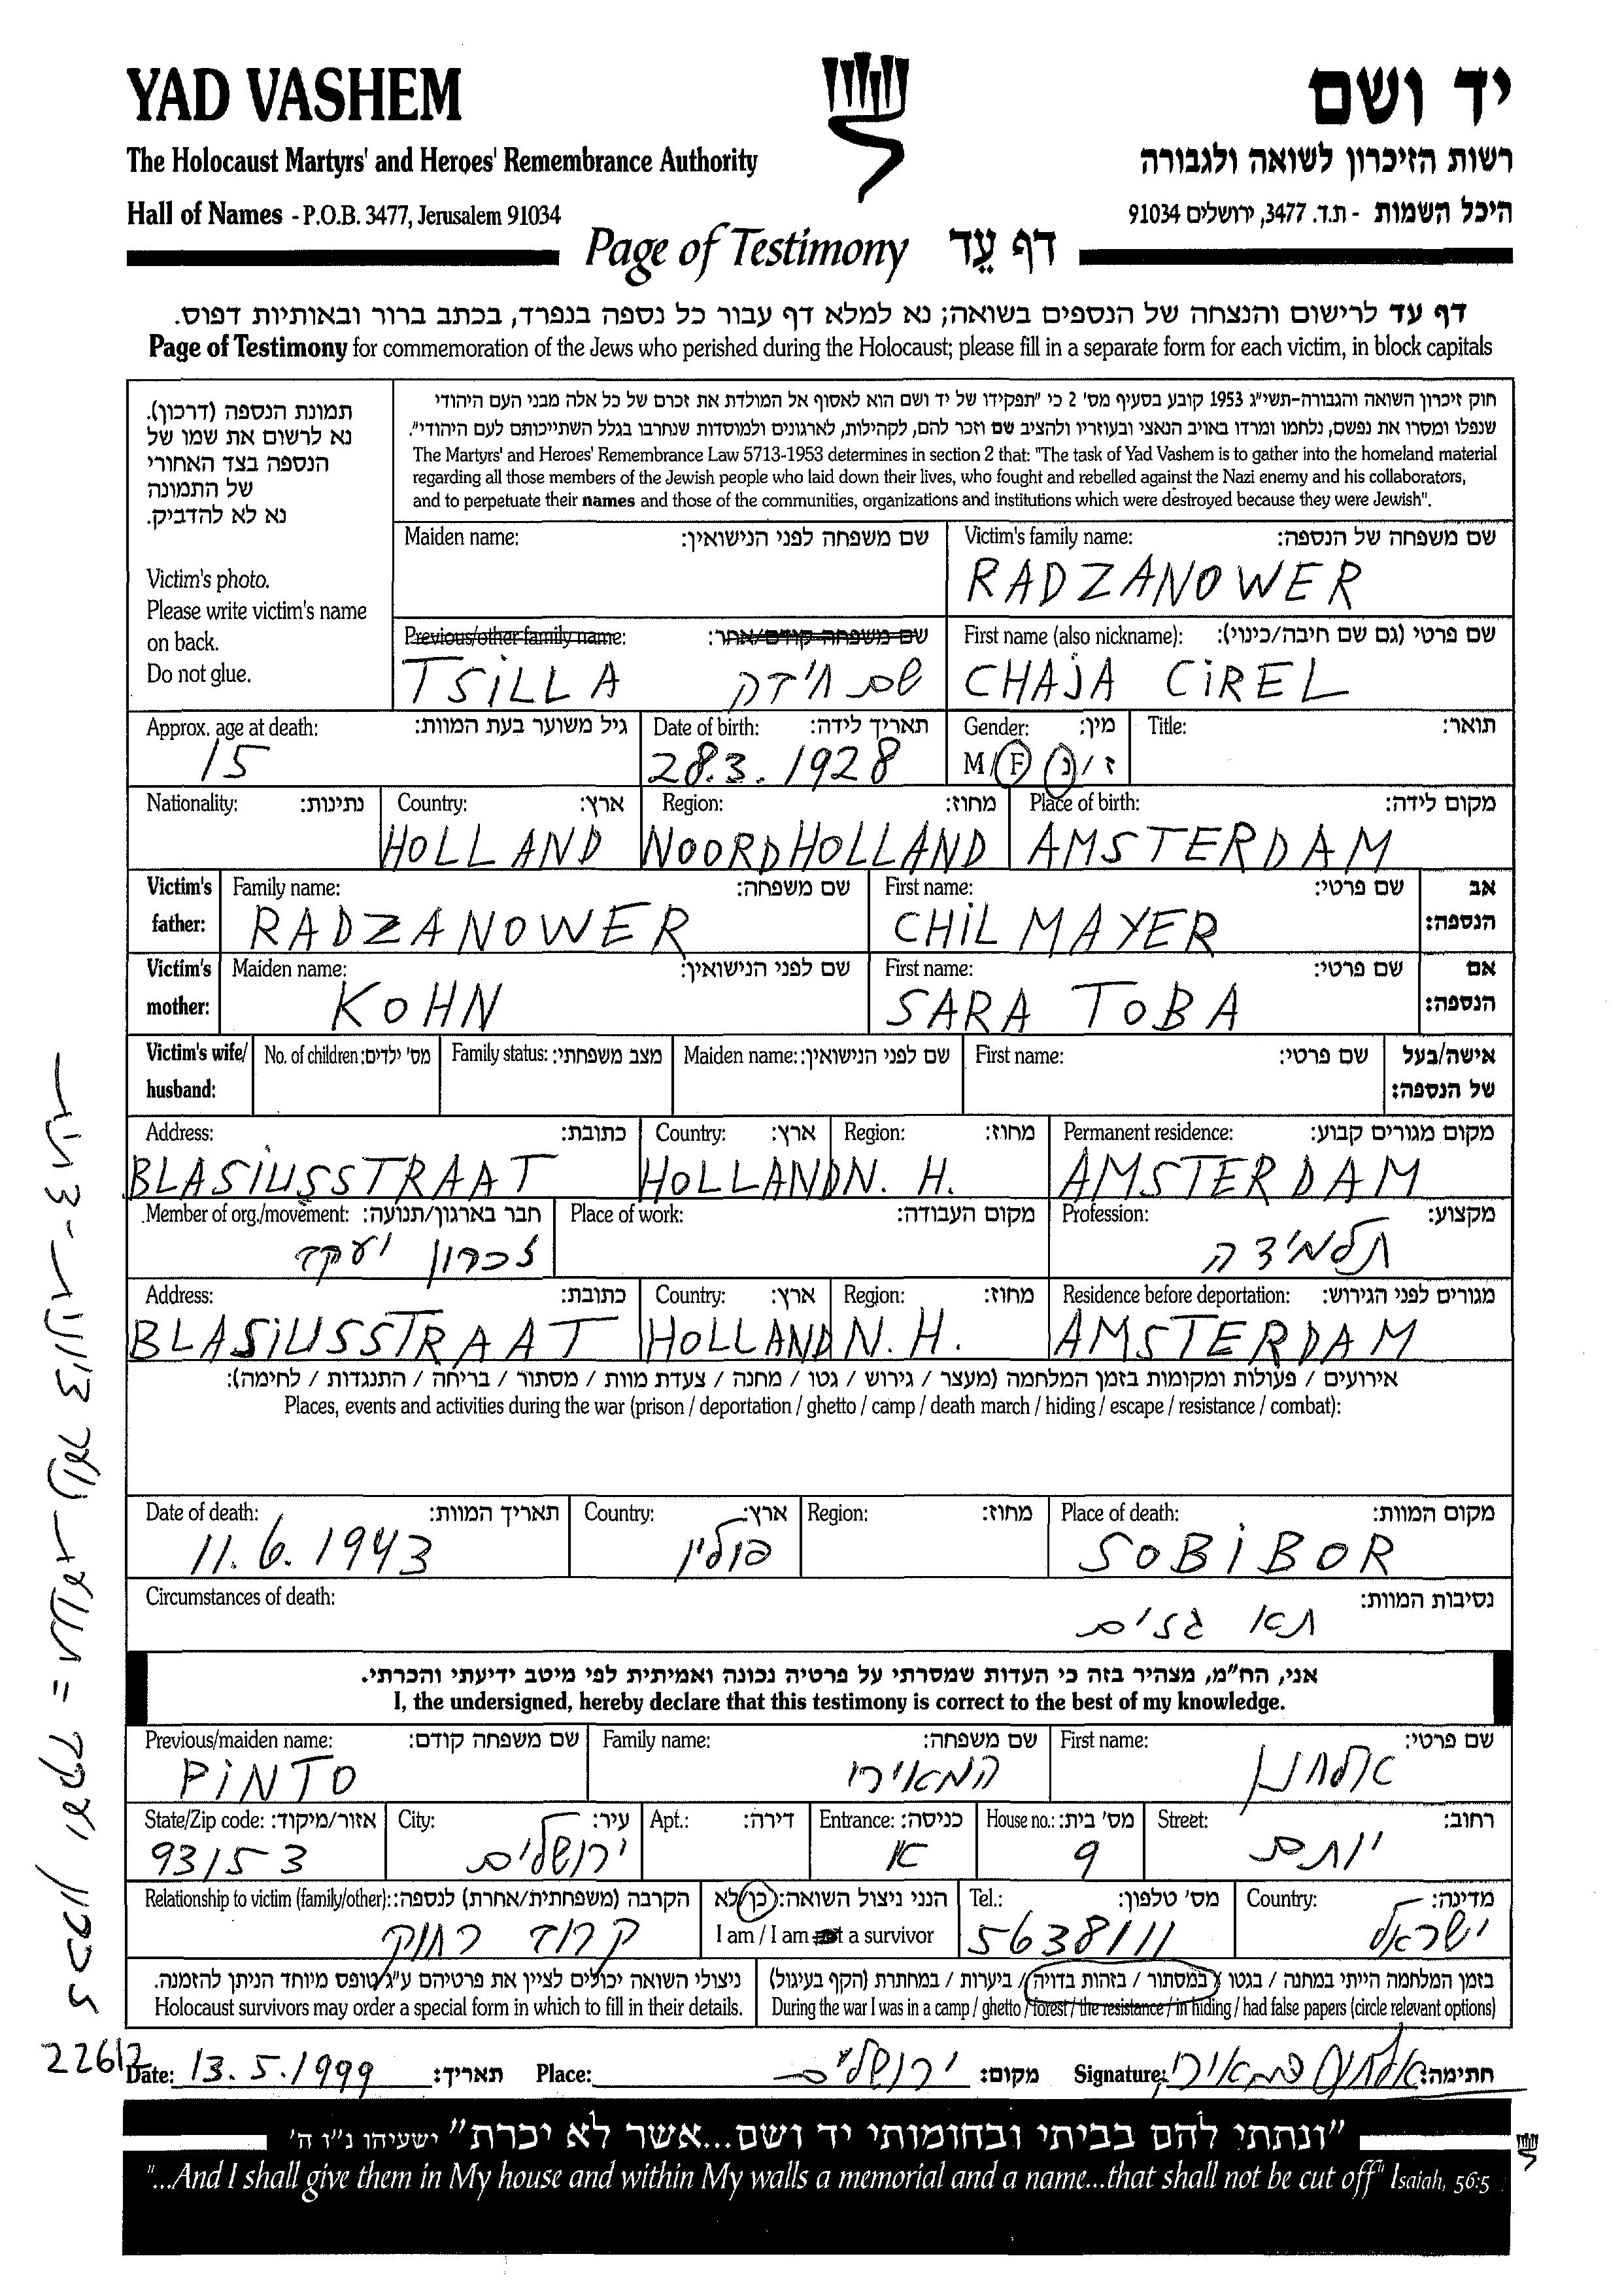 YAD VASHEM
יד ושם
The Holocaust Martyrs' and Heroes' Remembrance Authority
רשות הזיכרון לשואה ולגבורה
Hall of Names - P.O.B. 3477, Jerusalem 91034
היכל השמות - ת.ד. 3477, ירושלים 91034
Page of Testimony דף עֵד
דף עד לרישום והנצחה של הנספים בשואה; נא למלא דף עבור כל נספה בנפרד, בכתב ברור ובאותיות דפוס.
Page of Testimony for commemoration of the Jews who perished during the Holocaust; please fill in a separate form for each victim, in block capitals
תמונת הנספה (דרכון).
נא לרשום את שמו של
הנספה בצד האחורי
של התמונה
נא לא להדביק.
Victim's photo.
Please write victim's name
on back.
Do not glue.
חוק זיכרון השואה והגבורה-תשי"ג 1953 קובע בסעיף מס' 2 כי "תפקידו של יד ושם הוא לאסוף אל המולדת את זכרם של כל אלה מבני העם היהודי
שנפלו ומסרו את נפשם, נלחמו ומרדו באויב הנאצי ובעוזריו ולהציב שם וזכר להם, לקהילות, לארגונים ולמוסדות שנחרבו בגלל השתייכותם לעם היהודי".
The Martyrs' and Heroes' Remembrance Law 5713-1953 determines in section 2 that: "The task of Yad Vashem is to gather into the homeland material
regarding all those members of the Jewish people who laid down their lives, who fought and rebelled against the Nazi enemy and his collaborators,
and to perpetuate their names and those of the communities, organizations and institutions which were destroyed because they were Jewish".
Maiden name: שם משפחה לפני הנישואין:
Victim's family name: שם משפחה של הנספה:
RADZANOWER
Previous/other family name: שם משפחה קודם/אחר:
TSiLLA שם חיבה
First name (also nickname): שם פרטי (גם שם חיבה/כינוי):
CHAJA CiREL
Approx. age at death: גיל משוער בעת המוות:
15
Date of birth: תאריך לידה:
28.3.1928
Gender: מין:
M/F ז/נ
Title: תואר:
Nationality: נתינות:
Country: ארץ:
HOLLAND
Region: מחוז:
NOORDHOLLAND
Place of birth: מקום לידה:
AMSTERDAM
Victim's father:
Family name: שם משפחה:
RADZANOWER
First name: שם פרטי:
CHiL MAYER
אב הנספה:
Victim's mother:
Maiden name: שם לפני הנישואין:
KOHN
First name: שם פרטי:
SARA TOBA
אם הנספה:
Victim's wife/ husband:
No. of children: מס' ילדים:
Family status: מצב משפחתי:
Maiden name: שם לפני הנישואין:
First name: שם פרטי:
אישה/בעל של הנספה:
Address: כתובת:
BLASiUSSTRAAT
Country: ארץ:
HOLLAND
Region: מחוז:
N. H.
Permanent residence: מקום מגורים קבוע:
AMSTERDAM
Member of org./movement: חבר בארגון/תנועה:
זכרון יעקב
Place of work: מקום העבודה:
Profession: מקצוע:
תלמידה
Address: כתובת:
BLASiUSSTRAAT
Country: ארץ:
HOLLAND
Region: מחוז:
N. H.
Residence before deportation: מגורים לפני הגירוש:
AMSTERDAM
אירועים / פעולות ומקומות בזמן המלחמה (מעצר / גירוש / גטו / מחנה / צעדת מוות / מסתור / בריחה / התנגדות / לחימה):
Places, events and activities during the war (prison / deportation / ghetto / camp / death march / hiding / escape / resistance / combat):
Date of death: תאריך המוות:
11.6.1943
Country: ארץ:
פולין
Region: מחוז:
Place of death: מקום המוות:
SOBiBOR
Circumstances of death: נסיבות המוות:
תא גזים
אני, הח"מ, מצהיר בזה כי העדות שמסרתי על פרטיה נכונה ואמיתית לפי מיטב ידיעתי והכרתי.
I, the undersigned, hereby declare that this testimony is correct to the best of my knowledge.
Previous/maiden name: שם משפחה קודם:
PiNTO
Family name: שם משפחה:
המאירי
First name: שם פרטי:
אלחנן
State/Zip code: אזור/מיקוד:
93153
City: עיר:
ירושלים
Apt.: דירה:
Entrance: כניסה:
א
House no.: מס' בית:
9
Street: רחוב:
יותם
Relationship to victim (family/other): הקרבה (משפחתית/אחרת) לנספה:
קרוב רחוק
הנני ניצול השואה: כן/לא
I am / I am not a survivor
Tel.: מס' טלפון:
5638111
Country: מדינה:
ישראל
ניצולי השואה יכולים לציין את פרטיהם ע"ג טופס מיוחד הניתן להזמנה.
Holocaust survivors may order a special form in which to fill in their details.
בזמן המלחמה הייתי במחנה / בגטו / במסתור / בזהות בדויה / ביערות / במחתרת (הקף בעיגול)
During the war I was in a camp / ghetto / forest / the resistance / in hiding / had false papers (circle relevant options)
22612
Date: 13.5.1999 תאריך:
Place: ירושלים מקום:
Signature: אלחנן המאירי חתימה:
"ונתתי להם בביתי ובחומותי יד ושם...אשר לא יכרת" ישעיהו נ"ו ה'
"...And I shall give them in My house and within My walls a memorial and a name...that shall not be cut off" Isaiah, 56:5